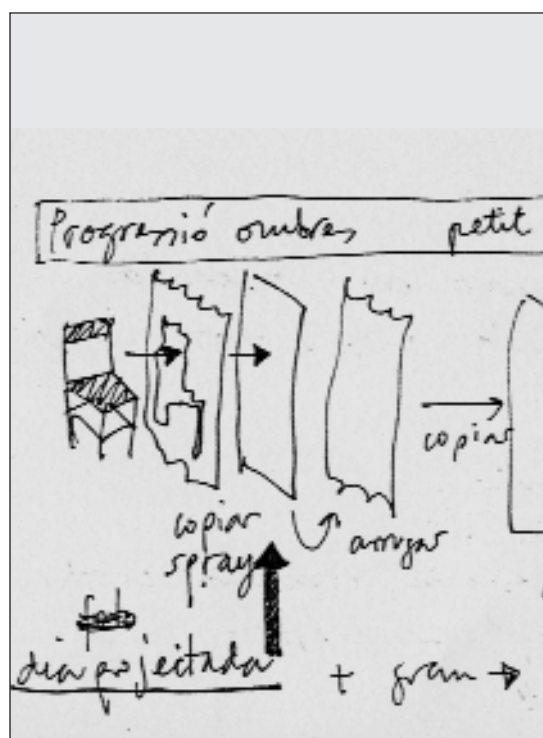 Progressió ombres petit
copiar
copiar
spray
arrugar
dia projectada
+ gran